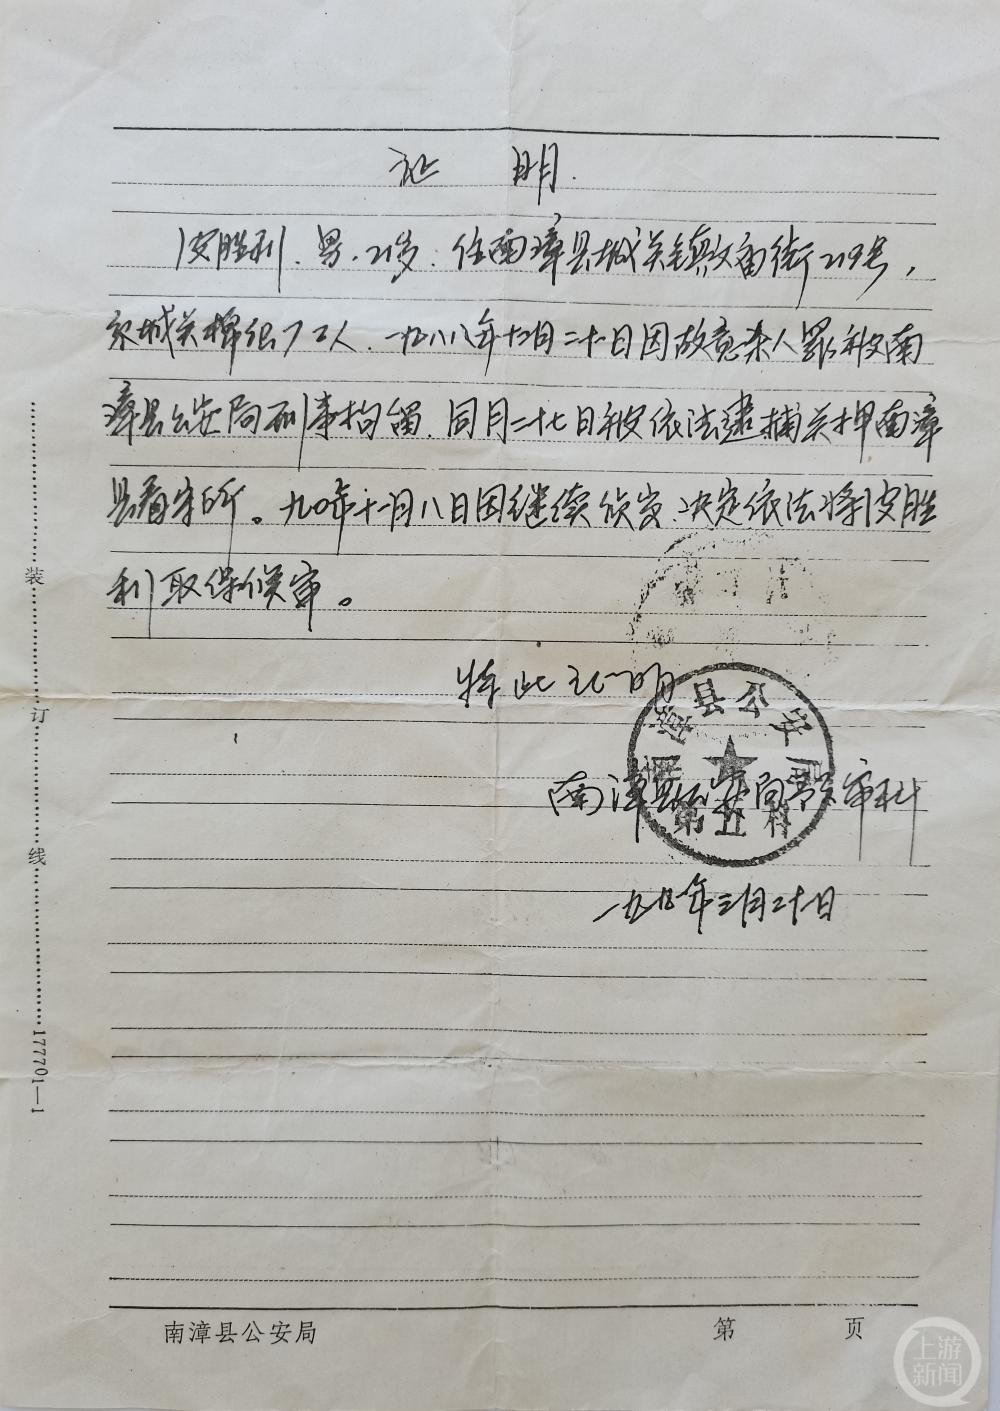 证 明.
皮胜利、男、21岁、住南漳县城关镇文庙街219号，
系城关棉织厂工人、一九八八年十二月二十日因故意杀人罪被南
漳县公安局刑事拘留、同月二十七日被依法逮捕关押南漳
县看守所。九0年十一月八日因继续侦查、决定依法将皮胜
利取保候审。
特此证明
南漳县公安局预审科
年三月二十一日
南漳县公安局
第五科
装
订
线
177701—1
南漳县公安局 第 页
上游
新闻